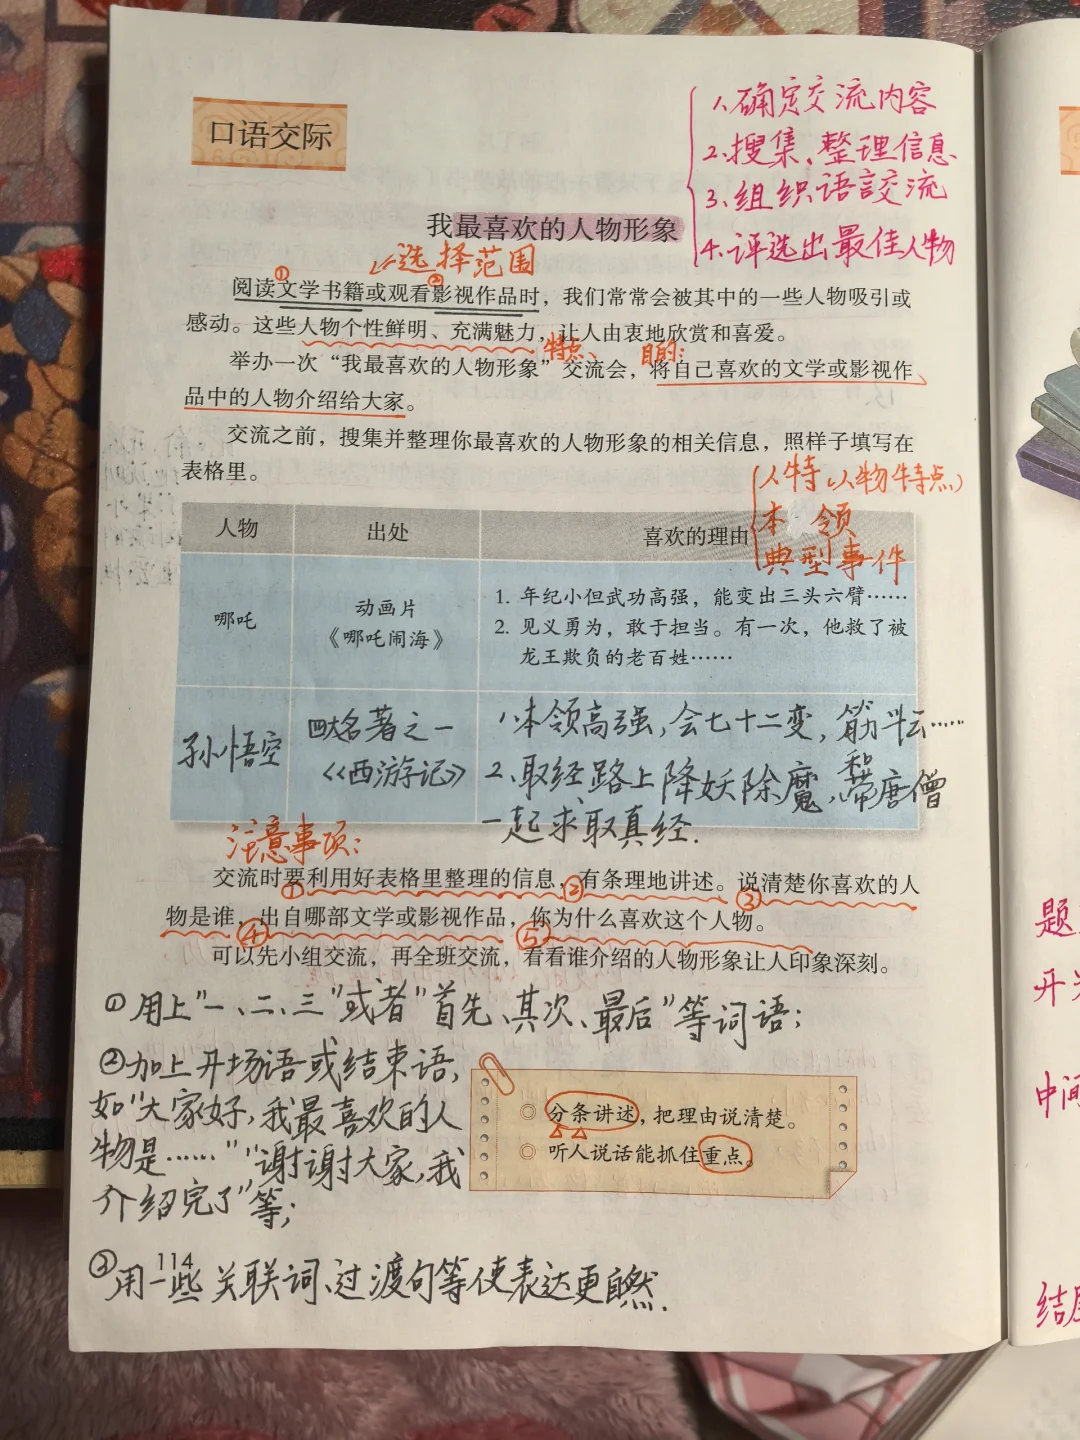 1、确定交流内容
2、搜集、整理信息
3、组织语言交流
4、评选出最佳人物
口语交际
我最喜欢的人物形象
选择范围
① ②
阅读文学书籍或观看影视作品时，我们常常会被其中的一些人物吸引或
感动。这些人物个性鲜明、充满魅力，让人由衷地欣赏和喜爱。
特点、 目的：
举办一次“我最喜欢的人物形象”交流会，将自己喜欢的文学或影视作
品中的人物介绍给大家。
交流之前，搜集并整理你最喜欢的人物形象的相关信息，照样子填写在
表格里。
人特（人物特点）
本领
典型事件
人物 出处 喜欢的理由
哪吒
动画片
《哪吒闹海》
1. 年纪小但武功高强，能变出三头六臂……
2. 见义勇为，敢于担当。有一次，他救了被
龙王欺负的老百姓……
孙悟空
四大名著之一
《西游记》
1、本领高强，会七十二变，筋斗云……
2、取经路上降妖除魔，和唐僧
一起求取真经.
注意事项：
交流时要利用好表格里整理的信息，有条理地讲述。说清楚你喜欢的人
① ② ③
物是谁，出自哪部文学或影视作品，你为什么喜欢这个人物。
④ ⑤
可以先小组交流，再全班交流，看看谁介绍的人物形象让人印象深刻。
①用上“一、二、三”或者“首先、其次、最后”等词语；
②加上开场语或结束语，
如“大家好，我最喜欢的人
物是……”“谢谢大家，我
介绍完了”等；
◎ 分条讲述，把理由说清楚。
◎ 听人说话能抓住重点。
114
③用一些关联词、过渡句等使表达更自然.
题
开
中间
结